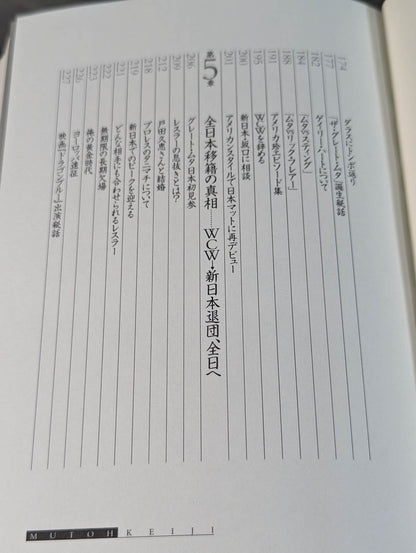 174 ダラスにトンボ返り
177 「ザ・グレート・ムタ」誕生秘話
182 ゲイリー・ハートについて
184 「ムタvsスティング」
188 「ムタvsリック・フレアー」
191 アメリカ珍エピソード集
195 WCWを辞める
200 新日本・坂口に相談
201 アメリカンスタイルで日本マットに再デビュー
第5章 全日本移籍の真相……WCW→新日本退団、全日へ
206 グレート・ムタ日本初見参
209 レスラーの息抜きとは?
212 戸田久恵さんと結婚
218 プロレスのタニマチについて
219 新日本でのピークを迎える
221 どんな相手にも合わせられるレスラー
無期限の長期欠場
223 俺の黄金時代
226 ヨーロッパ遠征
227 映画『ドラゴンブルー』出演秘話
MUTOH KEIJI